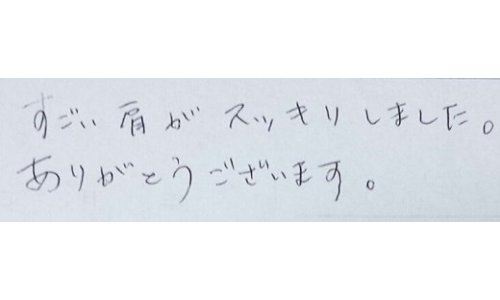 すごい肩がスッキリしました。
ありがとうございます。